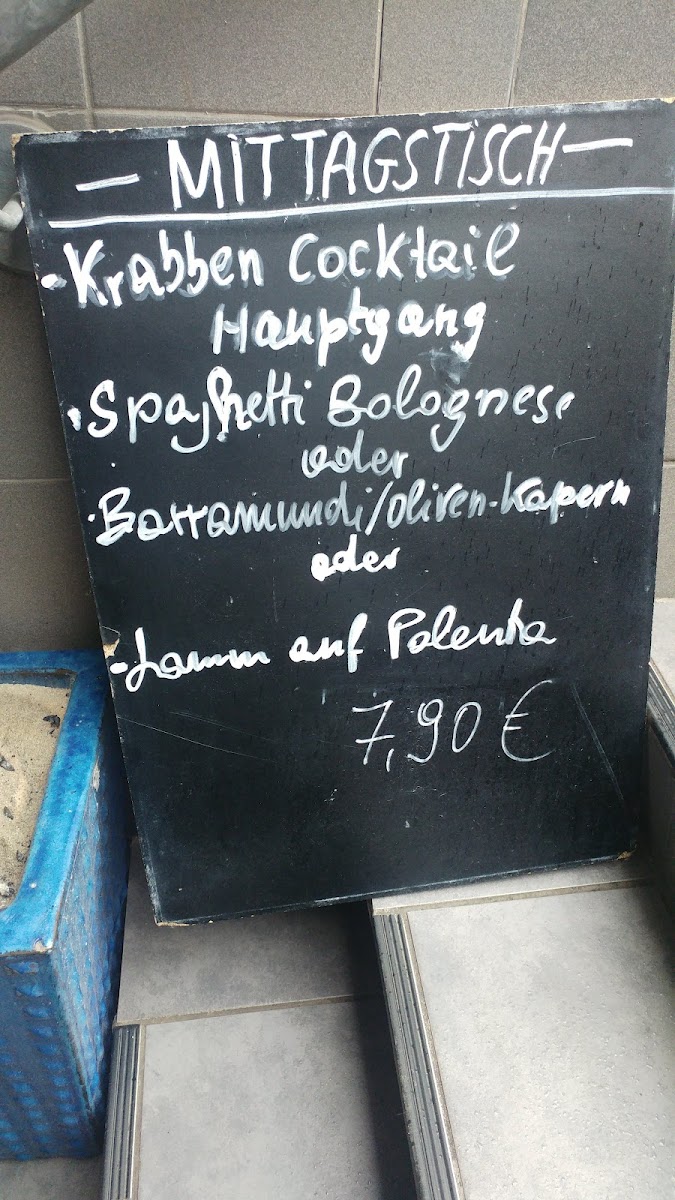 — MITTAGSTISCH —
• Krabben Cocktail
Hauptgang
• Spaghetti Bolognese
oder
• Barramundi/Oliven-Kapern
oder
• Lamm auf Polenta
7,90 €